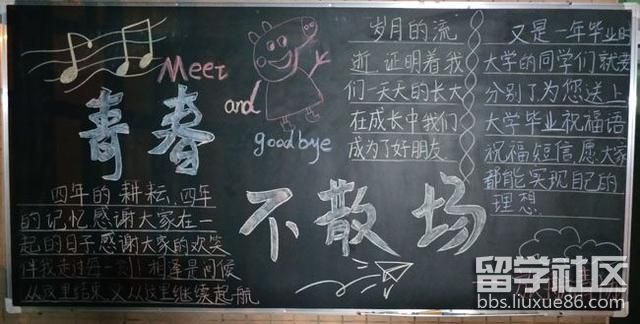 Meet
and
goodbye
青春
不散场
岁月的流
逝,证明着我
们一天天的长大
在成长中我们
成为了好朋友
又是一年毕业时
大学的同学们就要
分别了为您送上
大学毕业祝福语
祝福短信愿大家
都能实现自己的
理想
四年的耕耘、四年
的记忆感谢大家在一
起的日子感谢大家的欢笑
伴我走过每一刻!相逢是问候
从这里结束又从这里继续起航
留学社区
bbs.liuxue86.com